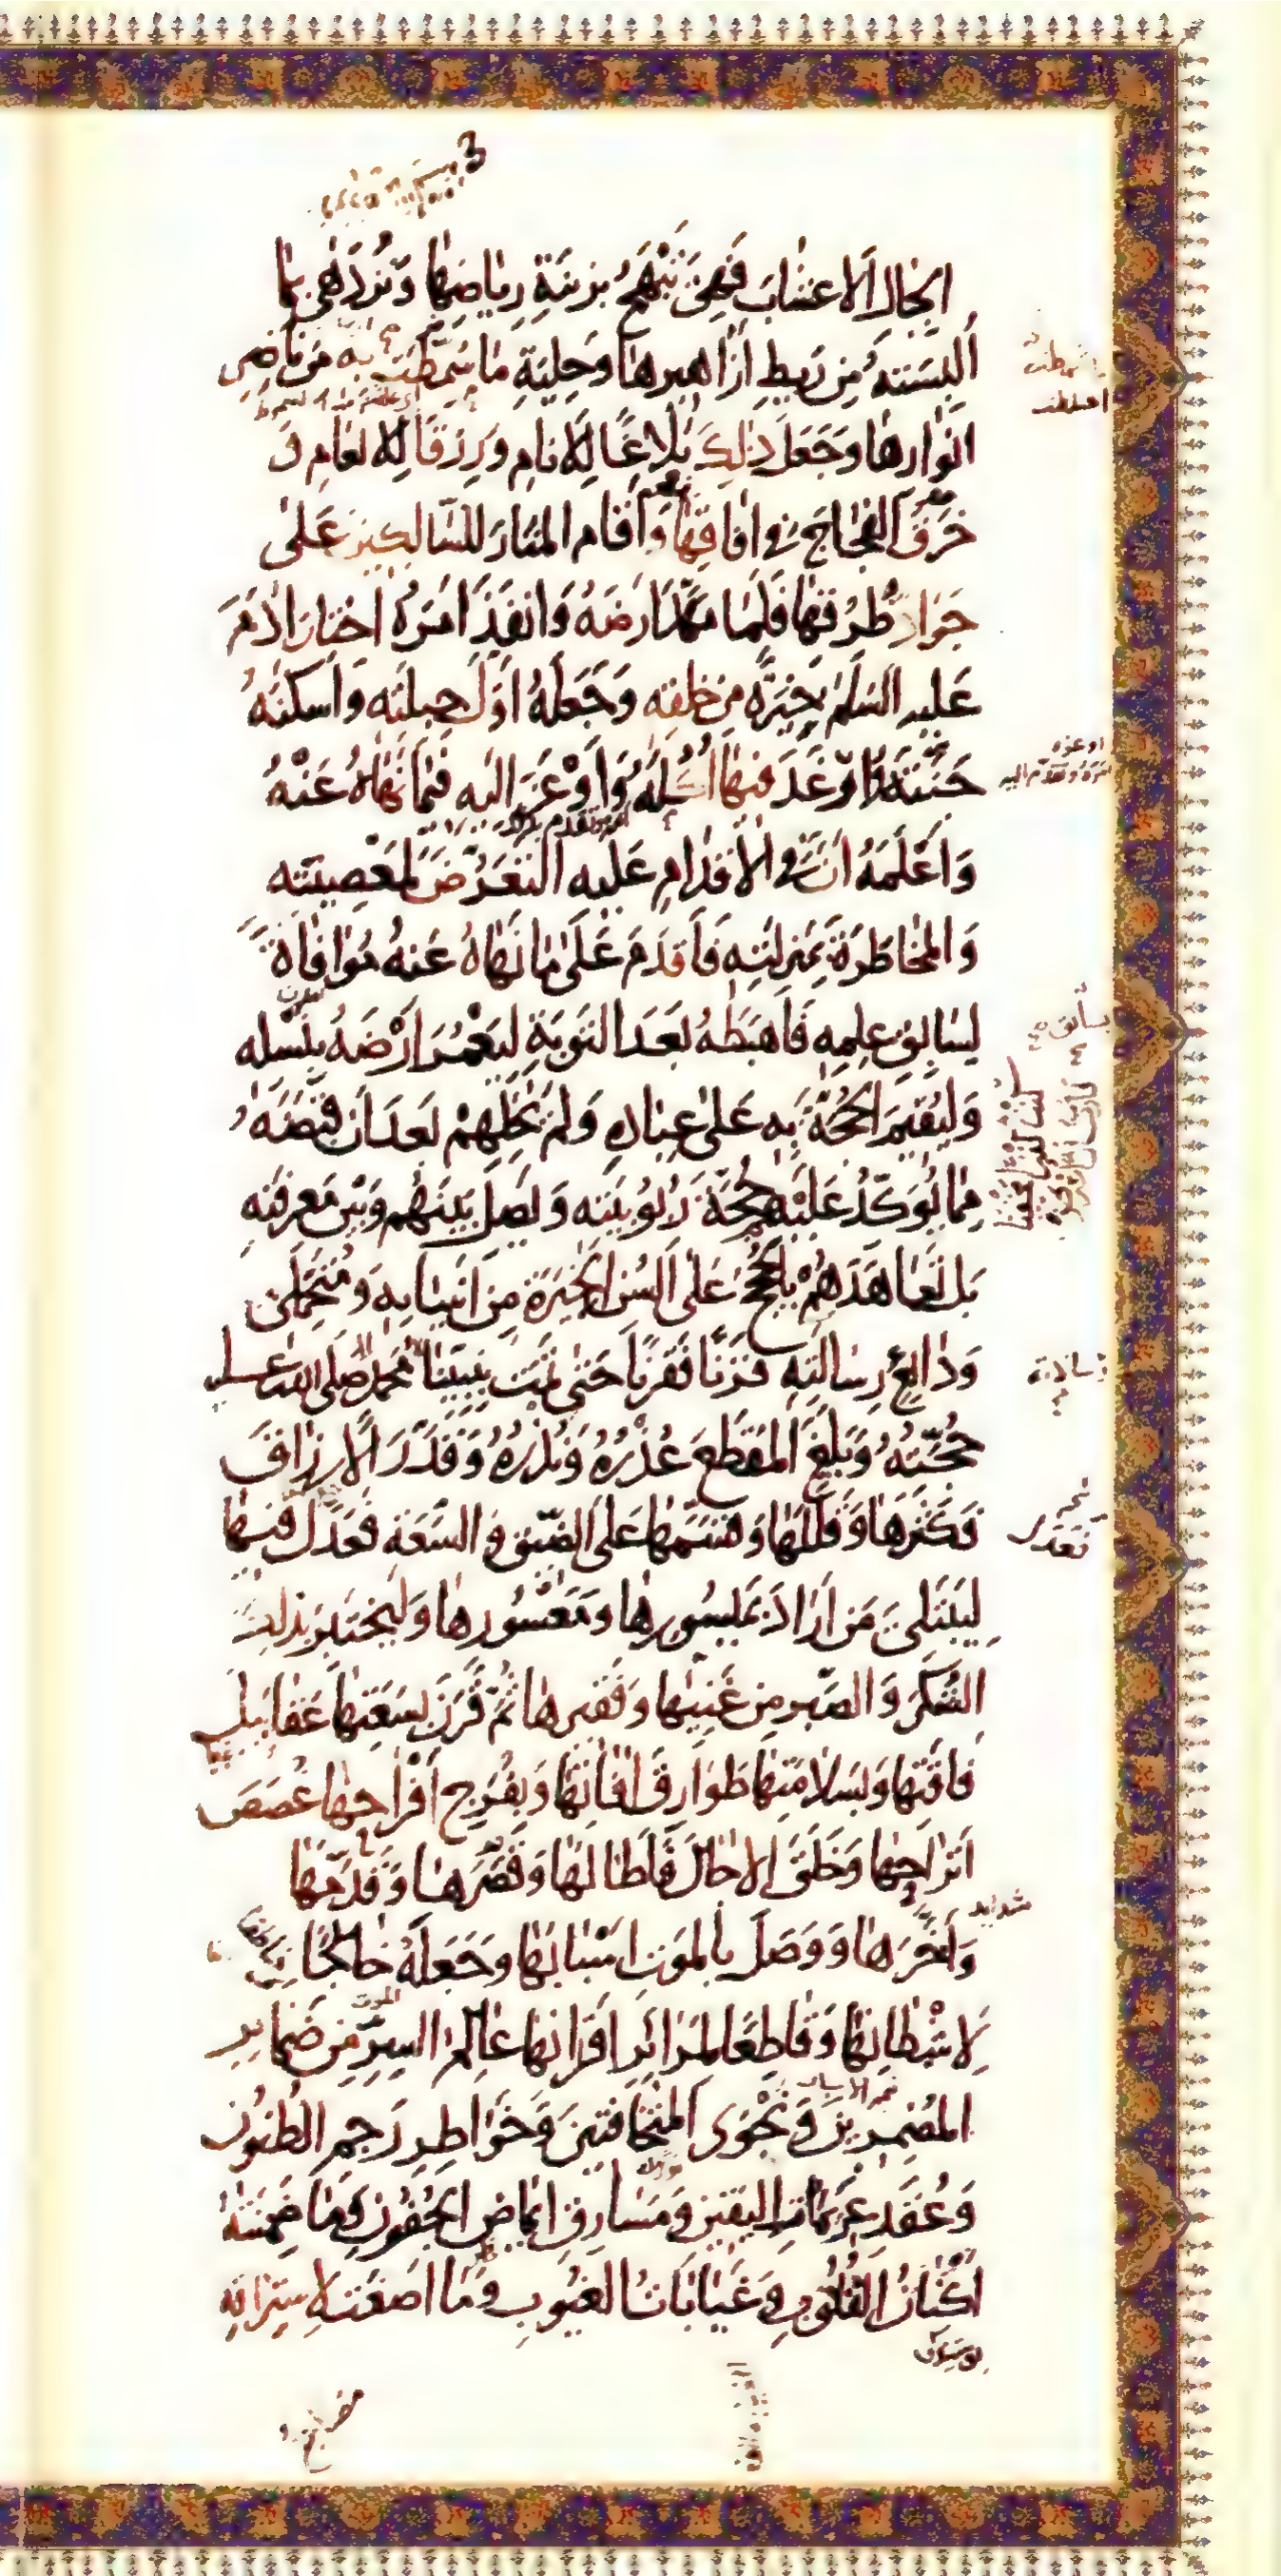 الجبال الاعشاب فهي تبهج بزينة رياضها وتزدهي بما
البسته من ريط ازاهيرها وحلية ما سمطت به من ناضر
انوارها وجعل ذلك بلاغا للانام ورزقا للانعام و
خرق الفجاج في افاقها واقام المنار للسالكين على
جواد طرقها فلما مهد ارضه وانفذ امره اختار ادم
عليه السلم خيرة من خلقه وجعله اول جبلته واسكنه
جنته وارغد فيها اكله واوعز اليه فيما نهاه عنه
واعلمه ان في الاقدام عليه التعرض لمعصيته
والمخاطرة بمنزلته فاقدم على ما نهاه عنه موافاة
لسابق علمه فاهبطه بعد التوبة ليعمر ارضه بنسله
وليقيم الحجة به على عباده ولم يخلهم بعد ان قبضه
مما يؤكد عليهم حجة ربوبيته ويصل بينهم وبين معرفته
بل تعاهدهم بالحجج على السن الخيرة من انبيائه ومتحملي
ودائع رسالته قرنا فقرنا حتى تمت بنبينا محمد صلى الله عليه
حجته وبلغ المقطع عذره ونذره وقدر الارزاق
فكثرها وقللها وقسمها على الضيق والسعة فعدل فيها
ليبتلي من اراد بميسورها ومعسورها وليختبر بذلك
الشكر والصبر من غنيها وفقيرها ثم قرن بسعتها عقابيل
فاقتها وبسلامتها طوارق افاتها وبفرج افراحها غصص
اتراحها وخلق الاجال فاطالها وقصرها وقدمها
واخرها ووصل بالموت اسبابها وجعله خالجا
لاشطانها وقاطعا لمرائر اقرانها عالم السر من ضمائر
المضمرين ونجوى المتخافتين وخواطر رجم الظنون
وعقد عزيمات اليقين ومسارق ايماض الجفون وما ضمنته
اكنان القلوب وغيابات الغيوب وما اصغت لاستراقه